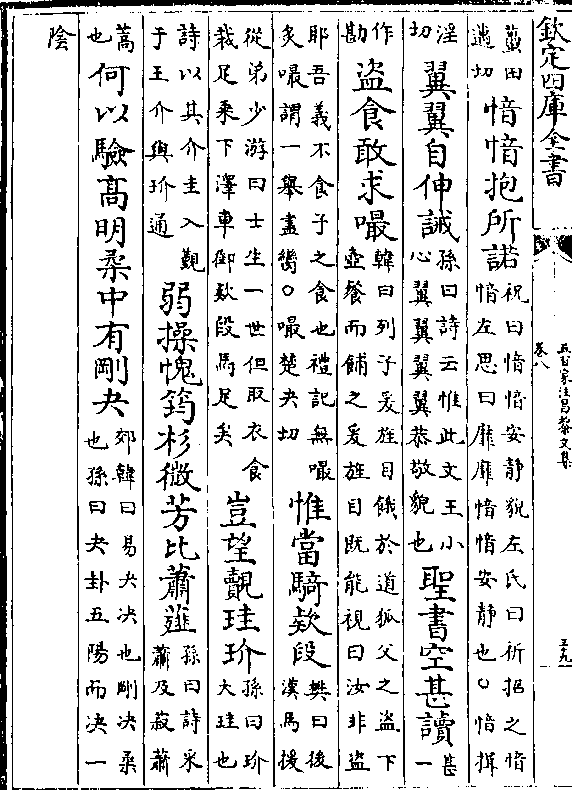 欽定四庫全書
五百家注昌黎文集
卷八
三十九
蔰田
遘切
愔愔抱所諾
祝曰愔愔安靜貌左氏曰祈招之愔
愔左思曰靡靡愔愔安靜也○愔揖
淫
切
翼翼自伸誡
孫曰詩云惟此文王小
心翼翼翼翼恭敬貌也
聖書空甚讀
甚
一
作
勘
盜食敢求嘬
韓曰列子爰旌目餓於道狐父之盜下
壺餐而餔之爰旌目旣能視曰汝非盜
耶吾義不食子之食也禮記無嘬
炙嘬謂一舉盡臠○嘬楚夬切
惟當騎欵段
樊曰後
漢馬援
從弟少游曰士生一世但取衣食
裁足乘下澤車御欵段馬足矣
豈望覿珪玠
孫曰玠
大珪也
詩以其介圭入覲
于王介與玠通
弱操愧筠杉微芳比蕭䪥
孫曰詩采
蕭及菽蕭
蒿
也
何以驗高明柔中有剛夬
郊韓曰易夬决也剛决柔
也孫曰夬卦五陽而决一
陰